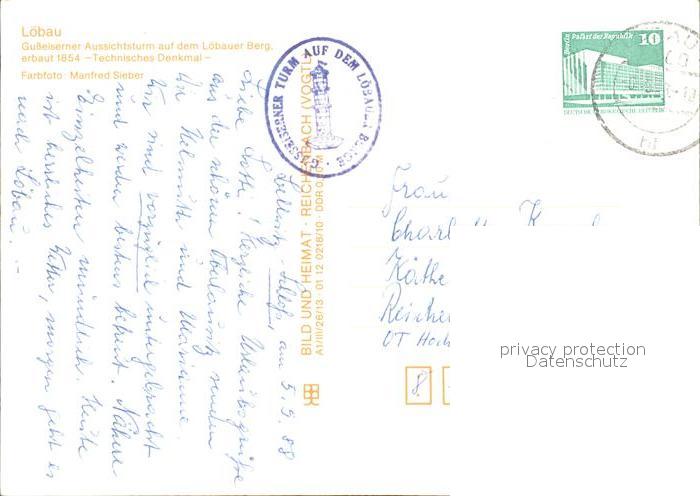 Löbau
Gußeiserner Aussichtsturm auf dem Löbauer Berg,
erbaut 1854 – Technisches Denkmal –
Farbfoto: Manfred Sieber
GUSSEISERNER TURM AUF DEM LÖBAUER BERGE
Berlin Palast der Republik
10
DEUTSCHE DEMOKRATISCHE REPUBLIK
Schloß, am 5.9.88
Liebe Lotte! Herzliche Urlaubsgrüße
aus der schönen Oberlausitz senden
Dir Helmuth und Marianne.
Wir sind vorzüglich untergebracht
und werden bestens betreut. Nähere
Einzelheiten mündlich. Heute
ist herrliches Wetter, morgen geht es
nach Löbau. –
BILD UND HEIMAT · REICHENBACH (VOGTL
A1/III/26/13 01 12 0218/10 · DDR
Frau
Charl
Käthe
Reiche
OT Hoch
8.
privacy protection
Datenschutz